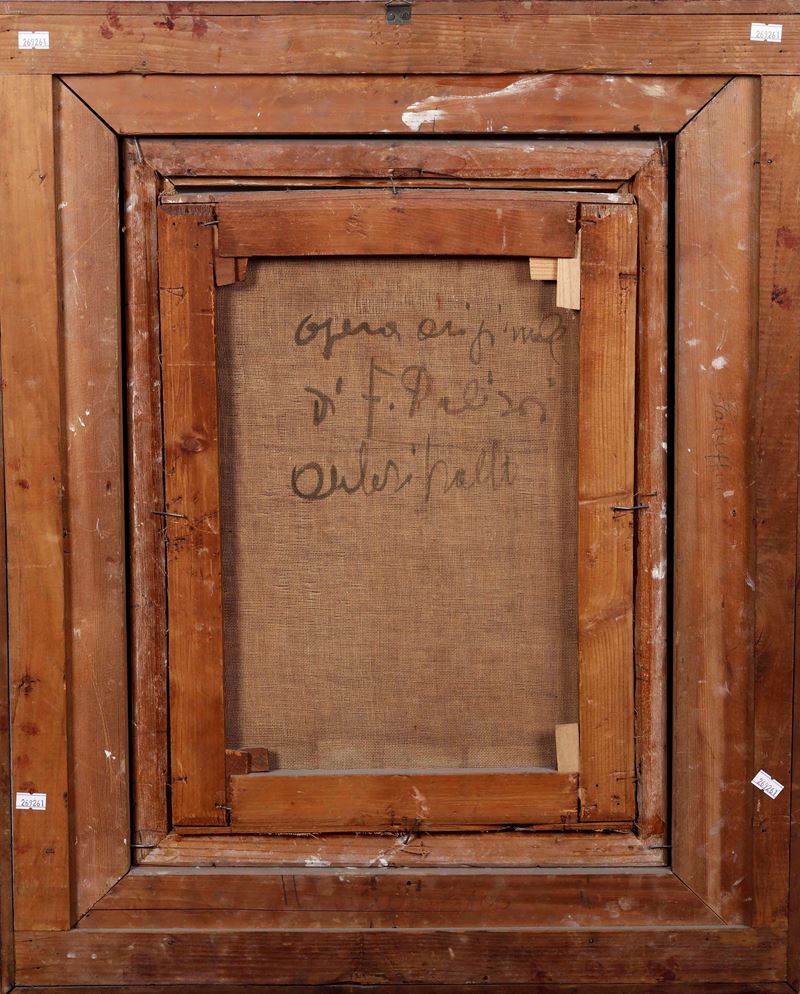 269261
269261
opera originale
di F. Palizzi
269261
269261